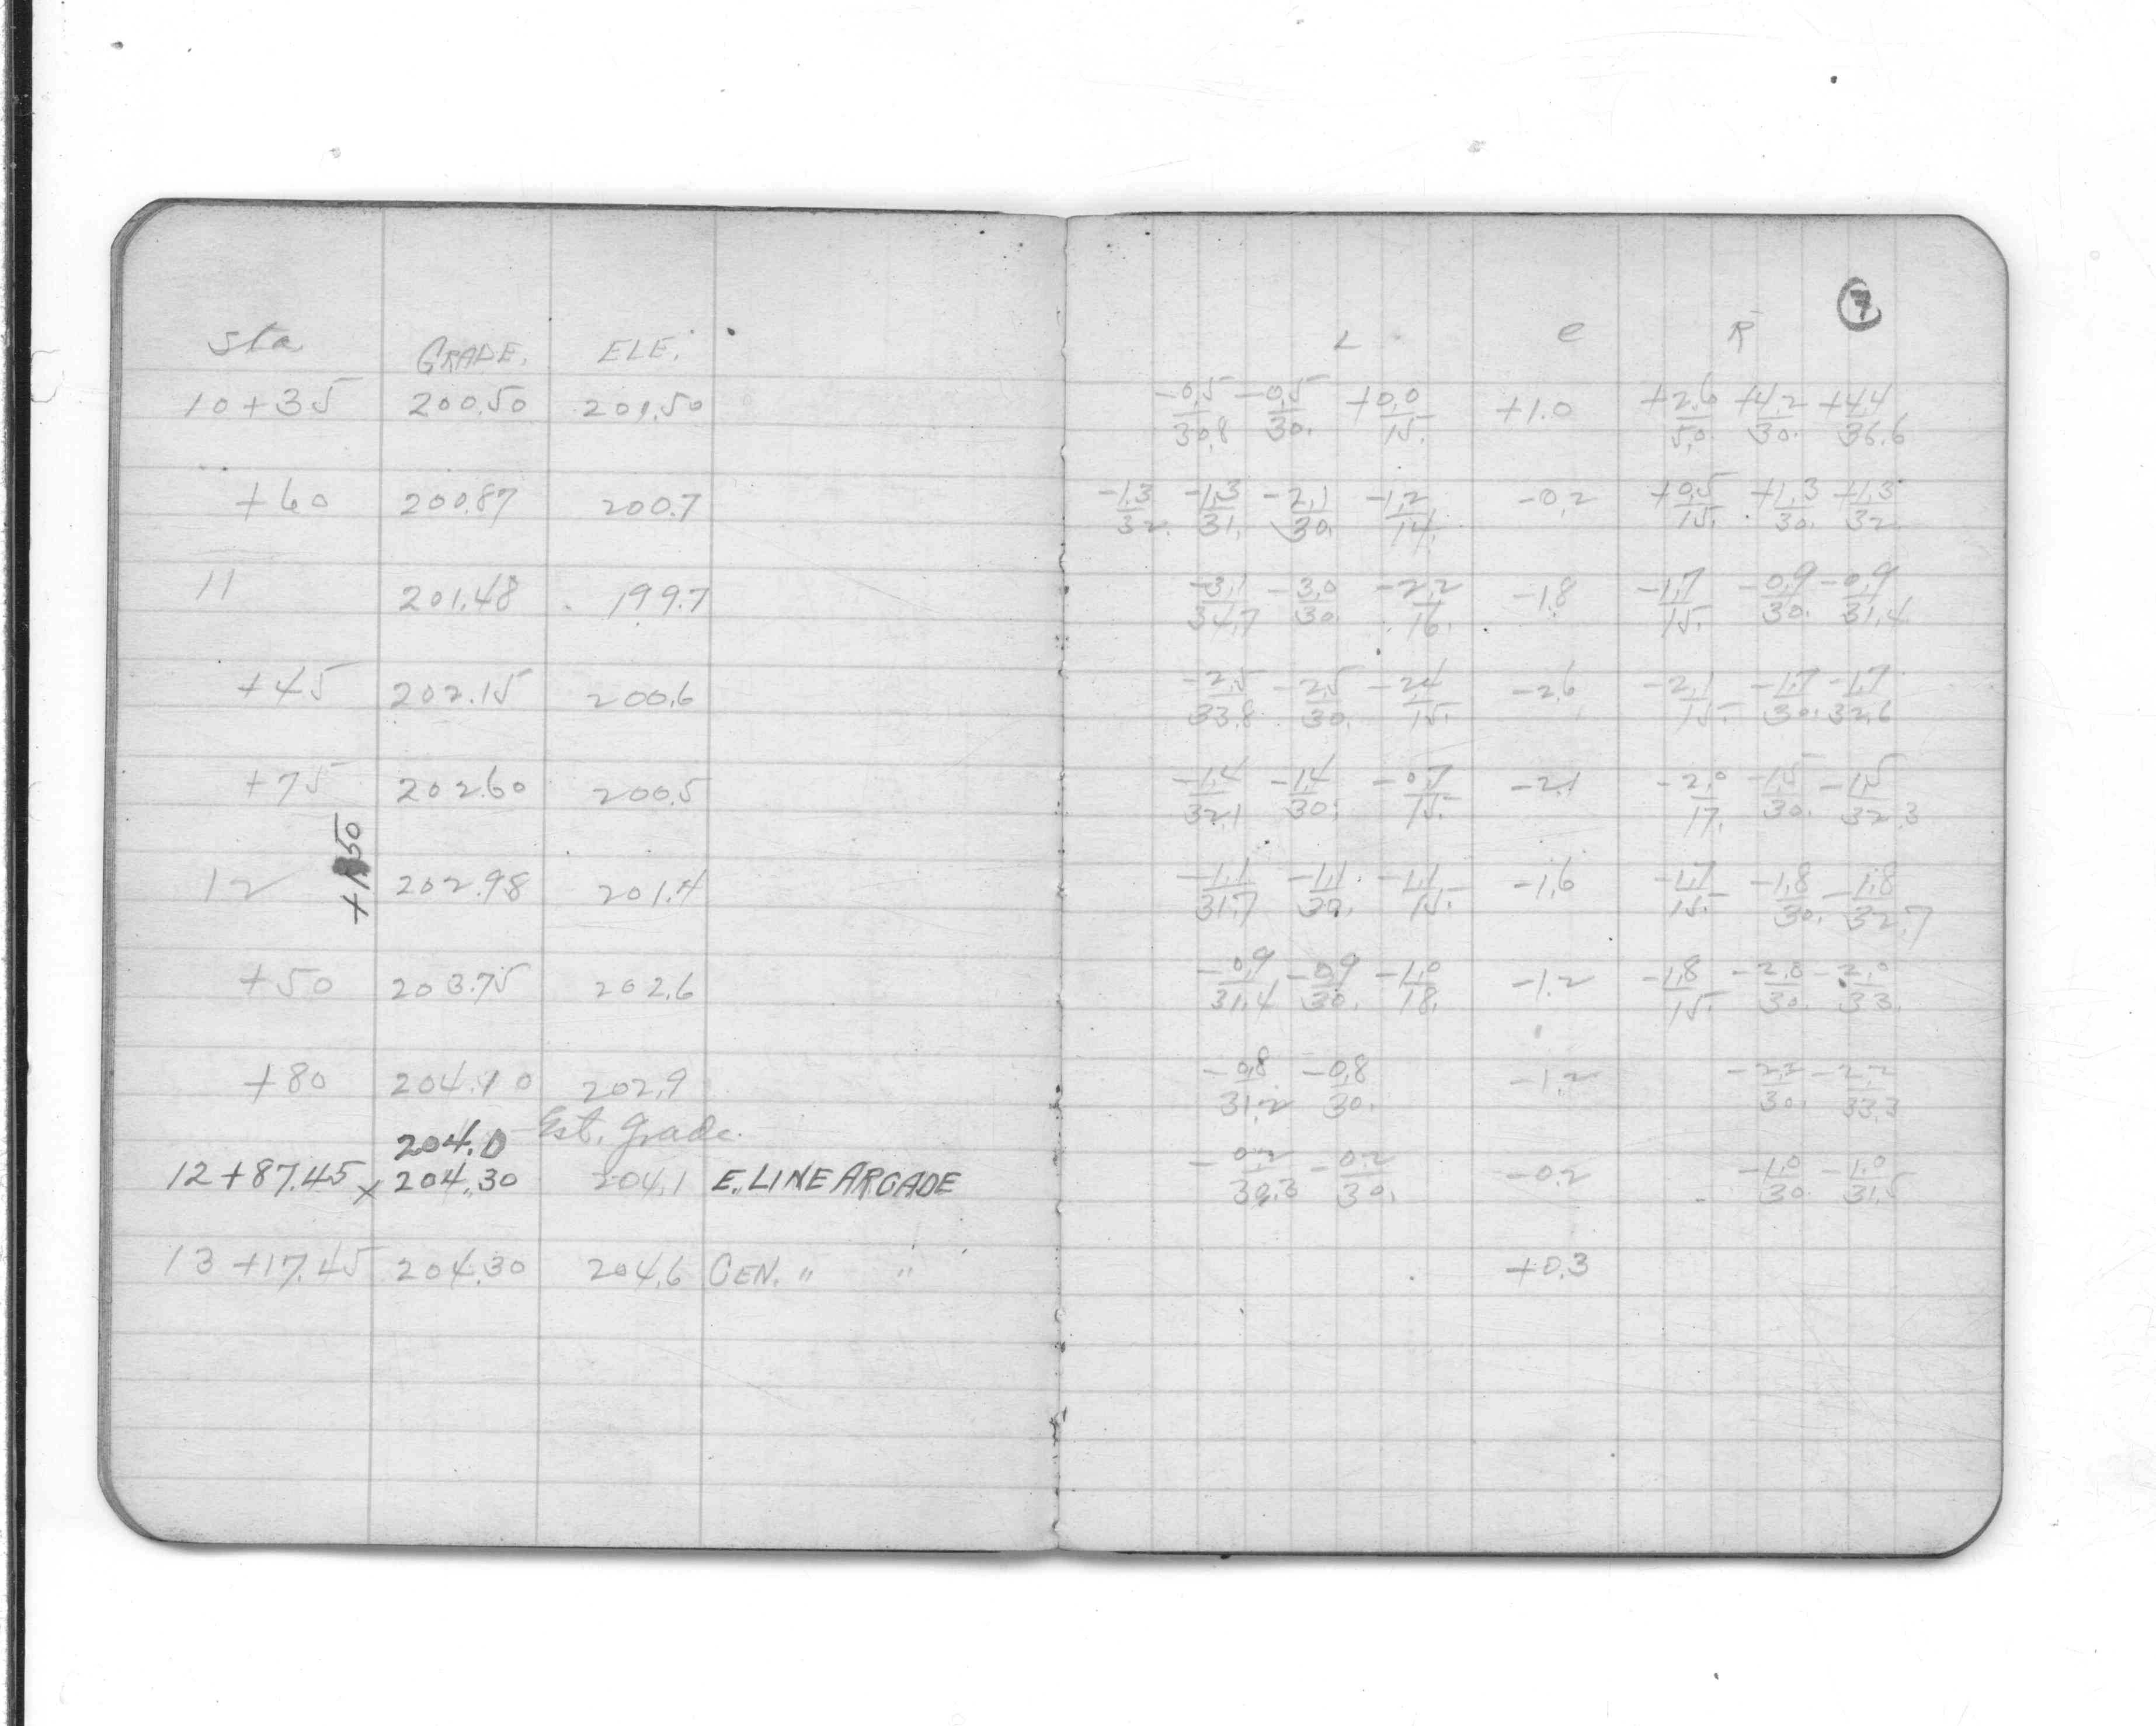 7
Sta GRADE. ELE. L e R
10+35 200.50 201.50 -0.5/30.8 -0.5/30. +0.0/15. +1.0 +2.6/5.0 +4.2/30. +4.4/36.6
+60 200.87 200.7 -1.3/32. -1.3/31. -2.1/30. -1.2/14. -0.2 +0.5/15. +1.3/30. +1.3/32
11 201.48 199.7 -3.1/34.7 -3.0/30. -2.2/16. -1.8 -1.7/15. -0.9/30. -0.9/31.4
+45 202.15 200.6 -2.5/33.8 -2.5/30. -2.4/15. -2.6 -2.1/15. -1.7/30. -1.7/32.6
+75 202.60 200.5 -1.4/32.1 -1.4/30. -0.7/15. -2.1 -2.0/17. -1.5/30. -1.5/32.3
+50
12 202.98 201.4 -1.1/31.7 -1.1/30. -1.1/15. -1.6 -1.7/15. -1.8/30. -1.8/32.7
+50 203.75 202.6 -0.9/31.4 -0.9/30. -1.0/18. -1.2 -1.8/15. -2.0/30. -2.0/33.
+80 204.10 202.9 -0.8/31.2 -0.8/30. -1.2 -2.2/30. -2.2/33.3
204.0 Est. Grade.
12+87.45 x 204.30 204.1 E. LINE ARCADE -0.2/30.3 -0.2/30. -0.2 -1.0/30. -1.0/31.5
13+17.45 204.30 204.6 CEN. " " +0.3